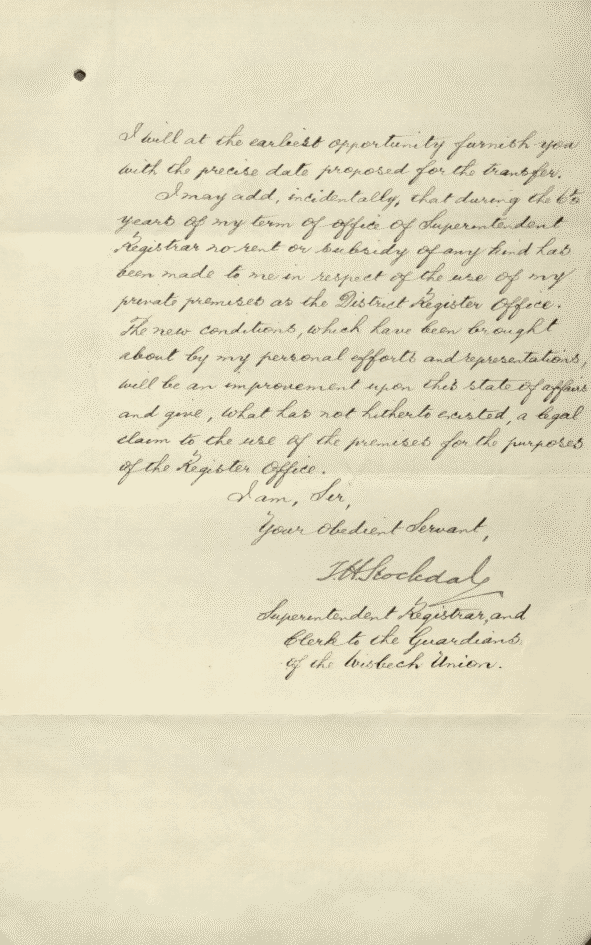 I will at the earliest opportunity furnish you
with the precise date proposed for the transfer.
I may add, incidentally, that during the
years of my term of office of Superintendent
Registrar no rent or subsidy of any kind has
been made to me in respect of the use of my
private premises as the District Register Office.
The new conditions, which have been brought
about by my personal efforts and representations,
will be an improvement upon this state of affairs
and give, what has not hitherto existed, a legal
claim to the use of the premises for the purposes
of the Register Office.
I am, Sir,
Your Obedient Servant,
Superintendent Registrar, and
Clerk to the Guardians
of the Wisbech Union.